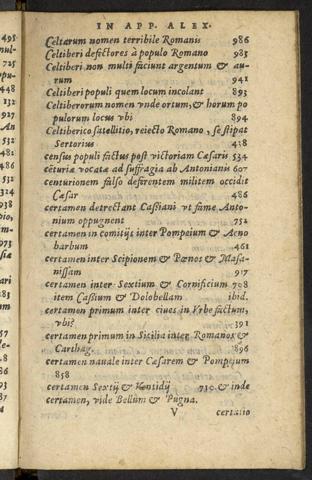 IN APP. ALEX.
Celtarum nomen terribile Romanis 986
Celtiberi defectores à populo Romano 983
Celtiberi non multi faciunt argentum & au-
rum 941
Celtiberi populi quem locum incolant 893
Celtiberorum nomen vnde ortum, & horum po
pulorum locus vbi 894
Celtiberico satellitio, reiecto Romano, se stipat
Sertorius 438
census populi factus post victoriam Cæsaris 534
cẽturiæ vocatæ ad suffragia ab Antonianis 607
centurionem falso deferentem militem occidit
Cæsar 486
certamen detrectant Cassiani vt fame Anto-
nium oppugnent 752
certamen in comitijs inter Pompeium & Aeno
barbum 461
certamen inter Scipionem & Pœnos & Masa-
nissam 917
certamen inter Sextium & Cornificium 708
item Cassium & Dolobellam ibid.
certamen primum inter ciues in Vrbe factum,
vbi? 391
certamen primum in Sicilia inter Romanos &
Carthag. 896
certamen nauale inter Cæsarem & Pompeium
858
certamen Sextij & Ventidij 730 & inde
certamen, vide Bellum & Pugna.
V certatio